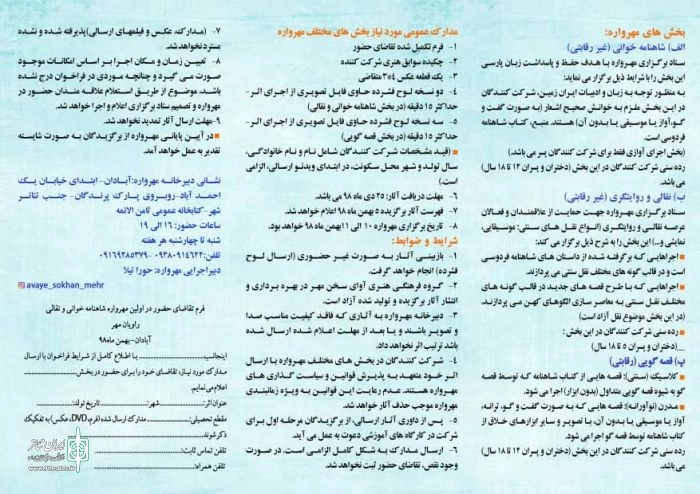 بخش های مهرواره:
الف) شاهنامه خوانی (غیر رقابتی)
ستاد برگزاری مهرواره با هدف حفظ و پاسداشت زبان پارسی
این بخش را با شرایط ذیل برگزار می نماید:
به منظور توجه به زبان و ادبیات ایران زمین، شرکت کنندگان
در این بخش ملزم به خوانش صحیح اشعار (به صورت گفت و
گو،آواز یا موسیقی یا بدون آن) هستند. منبع، کتاب شاهنامه
فردوسی است.
(بخش اجرای آوازی فقط برای شرکت کنندگان پسر می باشد).
رده سنی شرکت کنندگان در این بخش (دختران و پسران ۱۲ تا ۱۸ سال)
ب) نقالی و روایتگری (غیر رقابتی)
ستاد برگزاری مهرواره جهت حمایت از علاقمندان و فعالان
عرصه نقالی و روایتگری (انواع نقل های سنتی، موسیقایی،
نمایشی و...) این بخش را به شرح ذیل برگزار می کند:
اجراهایی که برگرفته شده از داستان های شاهنامه فردوسی
است و در قالب گونه های مختلف نقل سنتی می پردازند.
اجراهایی که با طرح قصه های جدید در قالب گونه های
مختلف نقل سنتی به معاصر سازی الگوهای کهن می پردازند.
(در این بخش موضوع نقل آزاد است)
رده سنی شرکت کنندگان در این بخش:
(دختران و پسران ۵ تا ۱۸ سال)
پ) قصه گویی (رقابتی)
کلاسیک (سنتی): قصه هایی از کتاب شاهنامه که توسط قصه
گو به شیوه قصه گویی متداول (بدون ابزار) اجرا می شود.
مدرن (نوآورانه): قصه هایی که به صورت گفت و گو، ترانه،
آواز یا موسیقی یا بدون آن، با تصویر و سایر ابزارهای خلاق از
کتاب شاهنامه توسط قصه گو اجرا می شود.
رده سنی شرکت کنندگان در این بخش (دختران و پسران ۱۲ تا ۱۸ سال)
مدارک عمومی مورد نیاز بخش های مختلف مهرواره
۱- فرم تکمیل شده تقاضای حضور
۲- چکیده سوابق هنری شرکت کننده
۳- یک قطعه عکس ۴*۳ متقاضی
۴- دو نسخه لوح فشرده حاوی فایل تصویری از اجرای اثر-
حداکثر ۱۵ دقیقه (در بخش شاهنامه خوانی و نقالی)
۵- سه نسخه لوح فشرده حاوی فایل تصویری از اجرای اثر-
حداکثر ۱۵ دقیقه (در بخش قصه گویی)
(قید مشخصات شرکت کنندگان شامل نام و نام خانوادگی،
سال تولد و شهر محل سکونت، در ابتدای ویدئو ارسالی، الزامی
است)
۶- مهلت دریافت آثار: ۲۵ دی ماه ۹۸ می باشد.
۷- فهرست آثار برگزیده ۵ بهمن ماه ۹۸ اعلام خواهد شد.
۸- تاریخ برگزاری مهرواره ۱۰ الی ۱۱بهمن ماه ۹۸ خواهد بود.
شرایط و ضوابط:
۱- بازبینی آثار به صورت غیر حضوری (ارسال لوح
فشرده) انجام خواهد گرفت.
۲- گروه فرهنگی هنری آوای سخن مهر در بهره برداری و
انتشار آثار برگزیده و تولید شده آزاد است.
۳- دبیرخانه مهرواره به آثاری که فاقد کیفیت مناسب صدا
و تصویر باشند و یا بعد از مهلت اعلام شده ارسال شده
باشد ترتیب اثر نخواهد داد.
۴- شرکت کنندگان در بخش های مختلف مهرواره با ارسال
اثر خود متعهد به پذیرش قوانین و سیاست گذاری های
مهرواره هستند. عدم رعایت این قوانین به ویژه زمانبندی
مهرواره موجب حذف آثار خواهد شد.
۵- پس از داوری آثار ارسالی، از برگزیدگان مرحله اول برای
شرکت در کارگاه های آموزشی دعوت به عمل می آید.
۶- ارسال مدارک به شکل کامل الزامی است. در صورت
وجود نقص، تقاضای حضور ثبت نخواهد شد.
۷- (مدارک، عکس و فیلمهای ارسالی)پذیرفته شده و نشده
مسترد نخواهد شد.
۸- تعیین زمان و مکان اجرا بر اساس امکانات موجود
صورت می گیرد و چنانچه موردی در فراخوان درج نشده
باشد، موضوع از طریق استعلام علاقه مندان حضور در
مهرواره و تصمیم ستاد برگزاری اعلام و اجرا خواهد شد.
۹-مهلت ارسال آثار تمدید نخواهد شد.
در آیین پایانی مهرواره از برگزیدگان به صورت شایسته
تقدیر به عمل خواهد آمد.
نشانی دبیرخانه مهرواره:آبادان- ابتدای خیابان یک
احمد آباد-روبروی پارک پرندگان- جنب تئاتر
شهر-کتابخانه عمومی ثامن الائمه
ساعات حضور: ۱۶ الی ۱۹
شنبه تا چهارشنبه هر هفته
تلفن:۰۹۳۸۰۹۱۴۶۲۲ - ۰۹۱۶۹۲۸۵۳۷۹
دبیراجرایی مهرواره: حورا تیلا
avaye_sokhan_mehr
فرم تقاضای حضور در اولین مهرواره شاهنامه خوانی و نقالی
راویان مهر
آبادان-بهمن ماه۹۸
اینجانب ............ با اطلاع کامل از شرایط فراخوان با ارسال
مدارک مورد نیاز، تقاضای خود را برای حضور در بخش............
اعلام می نمایم.
عنوان اثر:............شهر:............تاریخ تولد:............
مقطع تحصیلی:............مدارک ارسال شده (فرم،DVD،عکس) به تفکیک
ذکر شوند............
تلفن تماس ثابت:............
تلفن همراه:............
ایران تئاتر
www.theater.ir